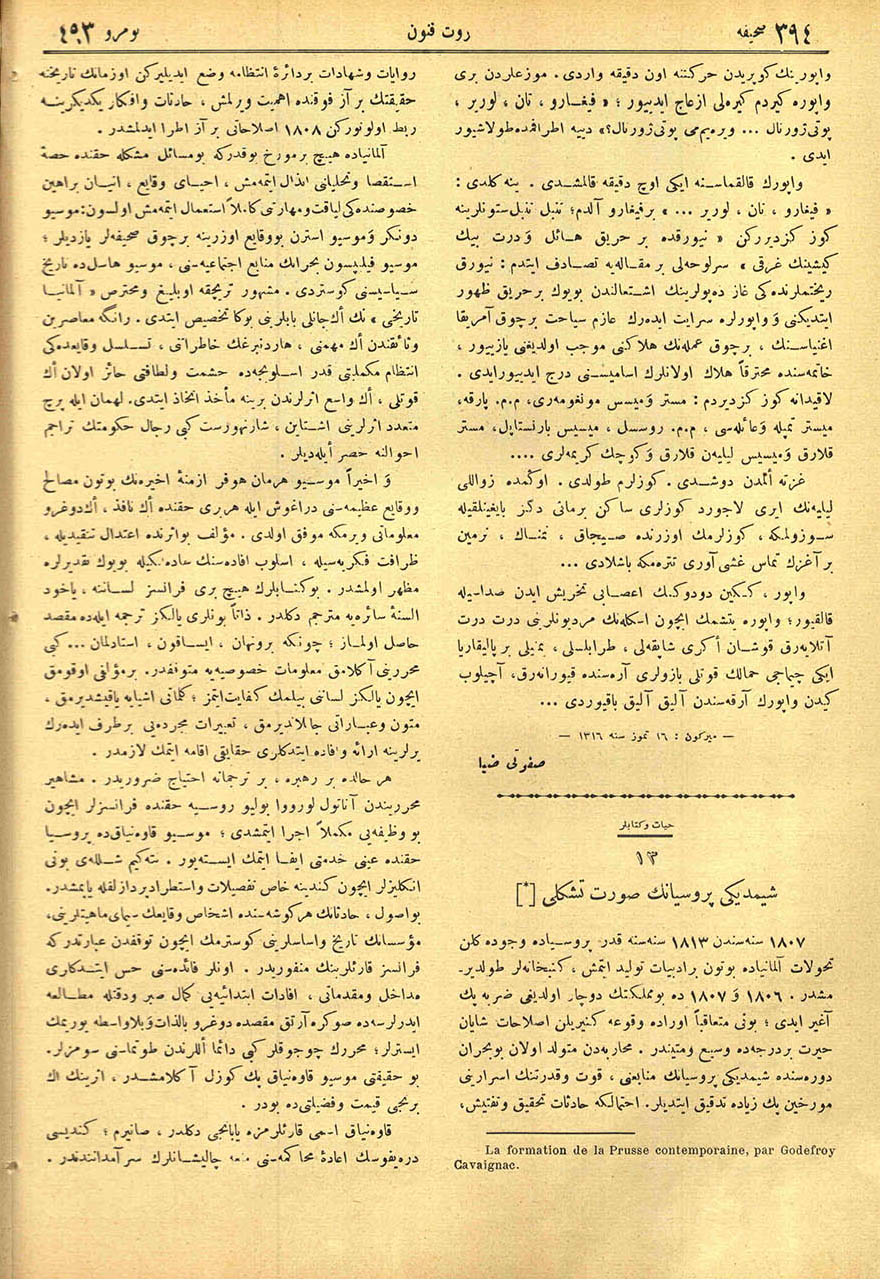 ٣٩٤ صحيفه
روت فنون
نومرو ٤٥٣
واپورينك كوپريدن حركتنه اون دقيقه واردى . موزعلردن برى
واپوره كيردم كيره‌لى ازعاج ايدييور ؛ « فيغارو ، تان ، لوربر ،
پوتى ژورنال ... ويره‌يم‌مى پوتى ژورنال؟» دييه اطرافمده طولاشيور
ايدى .
واپورك قالقماسنه ايكى اوچ دقيقه قالمشدى . ينه كلدى :
« فيغارو ، تان ، لوربر ... » برفيغارو آلدم؛ تنبل تنبل ستونلرينه
كوز كزديرركن « نيورقده بر حريق هائل و درت بيك
كيشينك غرقى » سرلوحه‌لى بر مقاله‌يه تصادف ايتدم : نيورق
ريختملرنده‌كى غاز ده‌پولرينك اشتعالندن بويوك برحريق ظهور
ايتديكنى و واپورلره سرايت ايده‌رك عازم سياحت برچوق آمريقا
اغنياسنك ، برچوق عمله‌نك هلاكنى موجب اولديغنى يازييور ،
خاتمه‌سنده محترقاً هلاك اولانلرك اساميسنى درج ايدييورايدى .
لاقيدانه كوز كزديردم : مستر و ميسس مونغومه‌رى، م.م. پارقه،
ميستر تمپله و عائله‌سى ، م.م. روسسل ، ميسيس بارنستاپل، مستر
قلارق و ميسيس ليليه‌ن قلارق و كوچك كريمه‌لرى ....
غزته المدن دوشدى . كوزلرم طولدى . اوكمده زواللى
ليليه‌نك ايرى لاجورد كوزلرى ساكن برمائى دكز بايغينلقيله
سوزولمكه، كوزلرمك اوزرنده صيجاق ، نمناك ، نرمين
بر آغزك تماس غشى آورى تتره‌مكه باشلادى ...
واپور ، كسكين دودوكنك اعصابى تخريش ايدن صداسيله
قالقيور؛ واپوره يتشمك ايچون اسكله‌نك مرديونلرينى درت درت
آتلايه‌رق قوشان اكرى شاپقه‌لى ، طرابلسلى ، بمبلى بر پاليقاريا
ايكى چيماجى حمالك قوتلى بازولرى آره‌سنده قيورانه‌رق، آچيلوب
كيدن واپورك آرقه‌سندن آليق آليق باقيوردى ...
— ميركون : ١٦ تموز سنه ١٣١٦ —
صفوتى ضيا
حيات وكتابلر
١٣
شيمديكى پروسيانك صورت تشكلى [*]
١٨٠٧ سنه‌سندن ١٨١٣ سنه‌سنه قدر پروسياده وجوده كلن
تحولات آلمانياده بوتون برادبيات توليد ايتمش ، كتبخانه‌لر طولدير-
مشدر . ١٨٠٦ و ١٨٠٧ ده بومملكتك دوچار اولديغى ضربه پك
آغير ايدى ؛ بونى متعاقباً اوراده وقوعه كتيريلن اصلاحات شايان
حيرت بردرجه‌ده وسيع و متيندر . محاربه‌دن متولد اولان بوبحران
دوره‌سنده شيمديكى پروسيانك منابعنى ، قوت وقدرتنك اسرارينى
مورخين پك زياده تدقيق ايتديلر. احتمالكه حادثات تحقيق وتفتيش،
La formation de la Prusse contemporaine, par Godefroy
Cavaignac.
روايات وشهادات بردائرهٔ انتظامه وضع ايديليركن اوزمانك تاريخنه
حقيقتك برآز فوقنده اهميت ويرلمش ، حادثات وافكار يكديكرينه
ربط اولونوركن ١٨٠٨ اصلاحاتى برآز اطرا ايدلمشدر .
آلمانياده هيچ برمورخ يوقدركه بومسائل مشكله حقنده حصهٔ
استقصا وتحليلنى ابذال ايتمه‌مش ، احياى وقايع ، اتيان براهين
خصوصنده‌كى لياقت ومهارتنى كاملاً استعمال ايتمه‌مش اولسون: موسيو
دونكر و موسيو استرن بووقايع اوزرينه برچوق صحيفه‌لر يازديلر ؛
موسيو فيليپسون بحرانك منابع اجتماعيه‌سنى ، موسيو هاسل‌ده تاريخ
سياسيسنى كوستردى . مشهور تريچقه اوبليغ ومحترص « آلمانيا
تاريخى » نك اك‌جانلى بابلرينى بوكا تخصيص ايتدى . رانكه معاصرين
وثائقندن اك مهمنى ، هاردنبرغك خاطراتنى ، تسلسل وقايعده‌كى
انتظام مكملتى قدر اسلوبجه‌ده حشمت ولطافتى حائز اولان اك
قوتلى ، اك واسع اثرلرندن برينه مأخذ اتخاذ ايتدى. لهمان ايله پرچ
متعدد اثرلرينى اشتاين ، شارنهورست كبى رجال حكومتك تراجم
احوالنه حصر ايله‌ديلر .
و اخيراً موسيو هرمان هوفر ازمنهٔ اخيره‌نك بوتون مصالح
ووقايع عظيمه‌سنى دراغوش ايله هربرى حقنده اك نافذ ، اك‌دوغرو
معلوماتى ويرمكه موفق اولدى . مؤلف بواثرنده اعتدال تنقيديله ،
ظرافت فكريه‌سيله ، اسلوب افاده‌سنك ساده‌لكيله بويوك تقديرلره
مظهر اولمشدر . بوكتابلرك هيچ برى فرانسز لساننه ، ياخود
السنهٔ سائره‌يه مترجم دكلدر . ذاتاً بونلرى يالكز ترجمه ايله‌ده مقصد
حاصل اولماز ؛ چونكه برونهان ، ايساقون ، استادلمان ... كبى
محررينى آكلامق معلومات خصوصيه‌يه متوقفدر. برمؤلفى اوقومق
ايچون يالكز لساننى بيلمك كفايت‌ايتمز ؛ كلماتى اشيايه ياقيشديرمق ،
متون وعباراتى جانلانديرمق ، تعبيرات مجرده‌يى برطرف ايده‌رك
يرلرينه ارائه وافاده ايتدكلرى حقايقى اقامه ايتمك لازمدر .
هر حالده بر رهبره ، بر ترجمانه احتياج ضروريدر . مشاهير
محرريندن آناتول لوروا بوليو روسيه حقنده فرانسزلر ايچون
بو وظيفه‌يى مكملاً اجرا ايتمشدى ؛ موسيو قاوه‌نياق‌ده پروسيا
حقنده عينى خدمتى ايفا ايتمك ايسته‌يور . نته‌كيم سله‌ى بونى
انكليزلر ايچون كندينه خاص تفصيلات واستطرادپردازلقله يابمشدر.
بواصول ، حادثاتك هركوشه‌سنده اشخاص وقايعك سيماى ماهيتلرينى،
مؤسساتك تاريخ واساسلرينى كوسترمك ايچون توقفدن عبارتدركه
فرانسز قارئلرينك منفوريدر . اونلر فائده‌سنى حس ايتدكلرى
مداخل ومقدماتى ، افادات ابتدائيه‌يى كمال صبر ودقتله مطالعه
ايدرلرسه‌ده صوكره آرتق مقصده دوغرو بالذات و بلاواسطه يورومك
ايسترلر؛ محررك چوجوقلر كبى دائما اللرندن طوتماسنى سومزلر.
بو حقيقتى موسيو قاوه‌نياق پك كوزل آكلامشدر ، اثرينك اك
برنجى قيمت وفضيلتى‌ده بودر .
قاوه‌نياق اسمى قارئلرمزه يابانجى دكلدر ، صانيرم ؛ كنديسى
دره‌يفوسك اعادهٔ محاكمه‌سنى منعه چاليشانلرك سرآمداننندر .